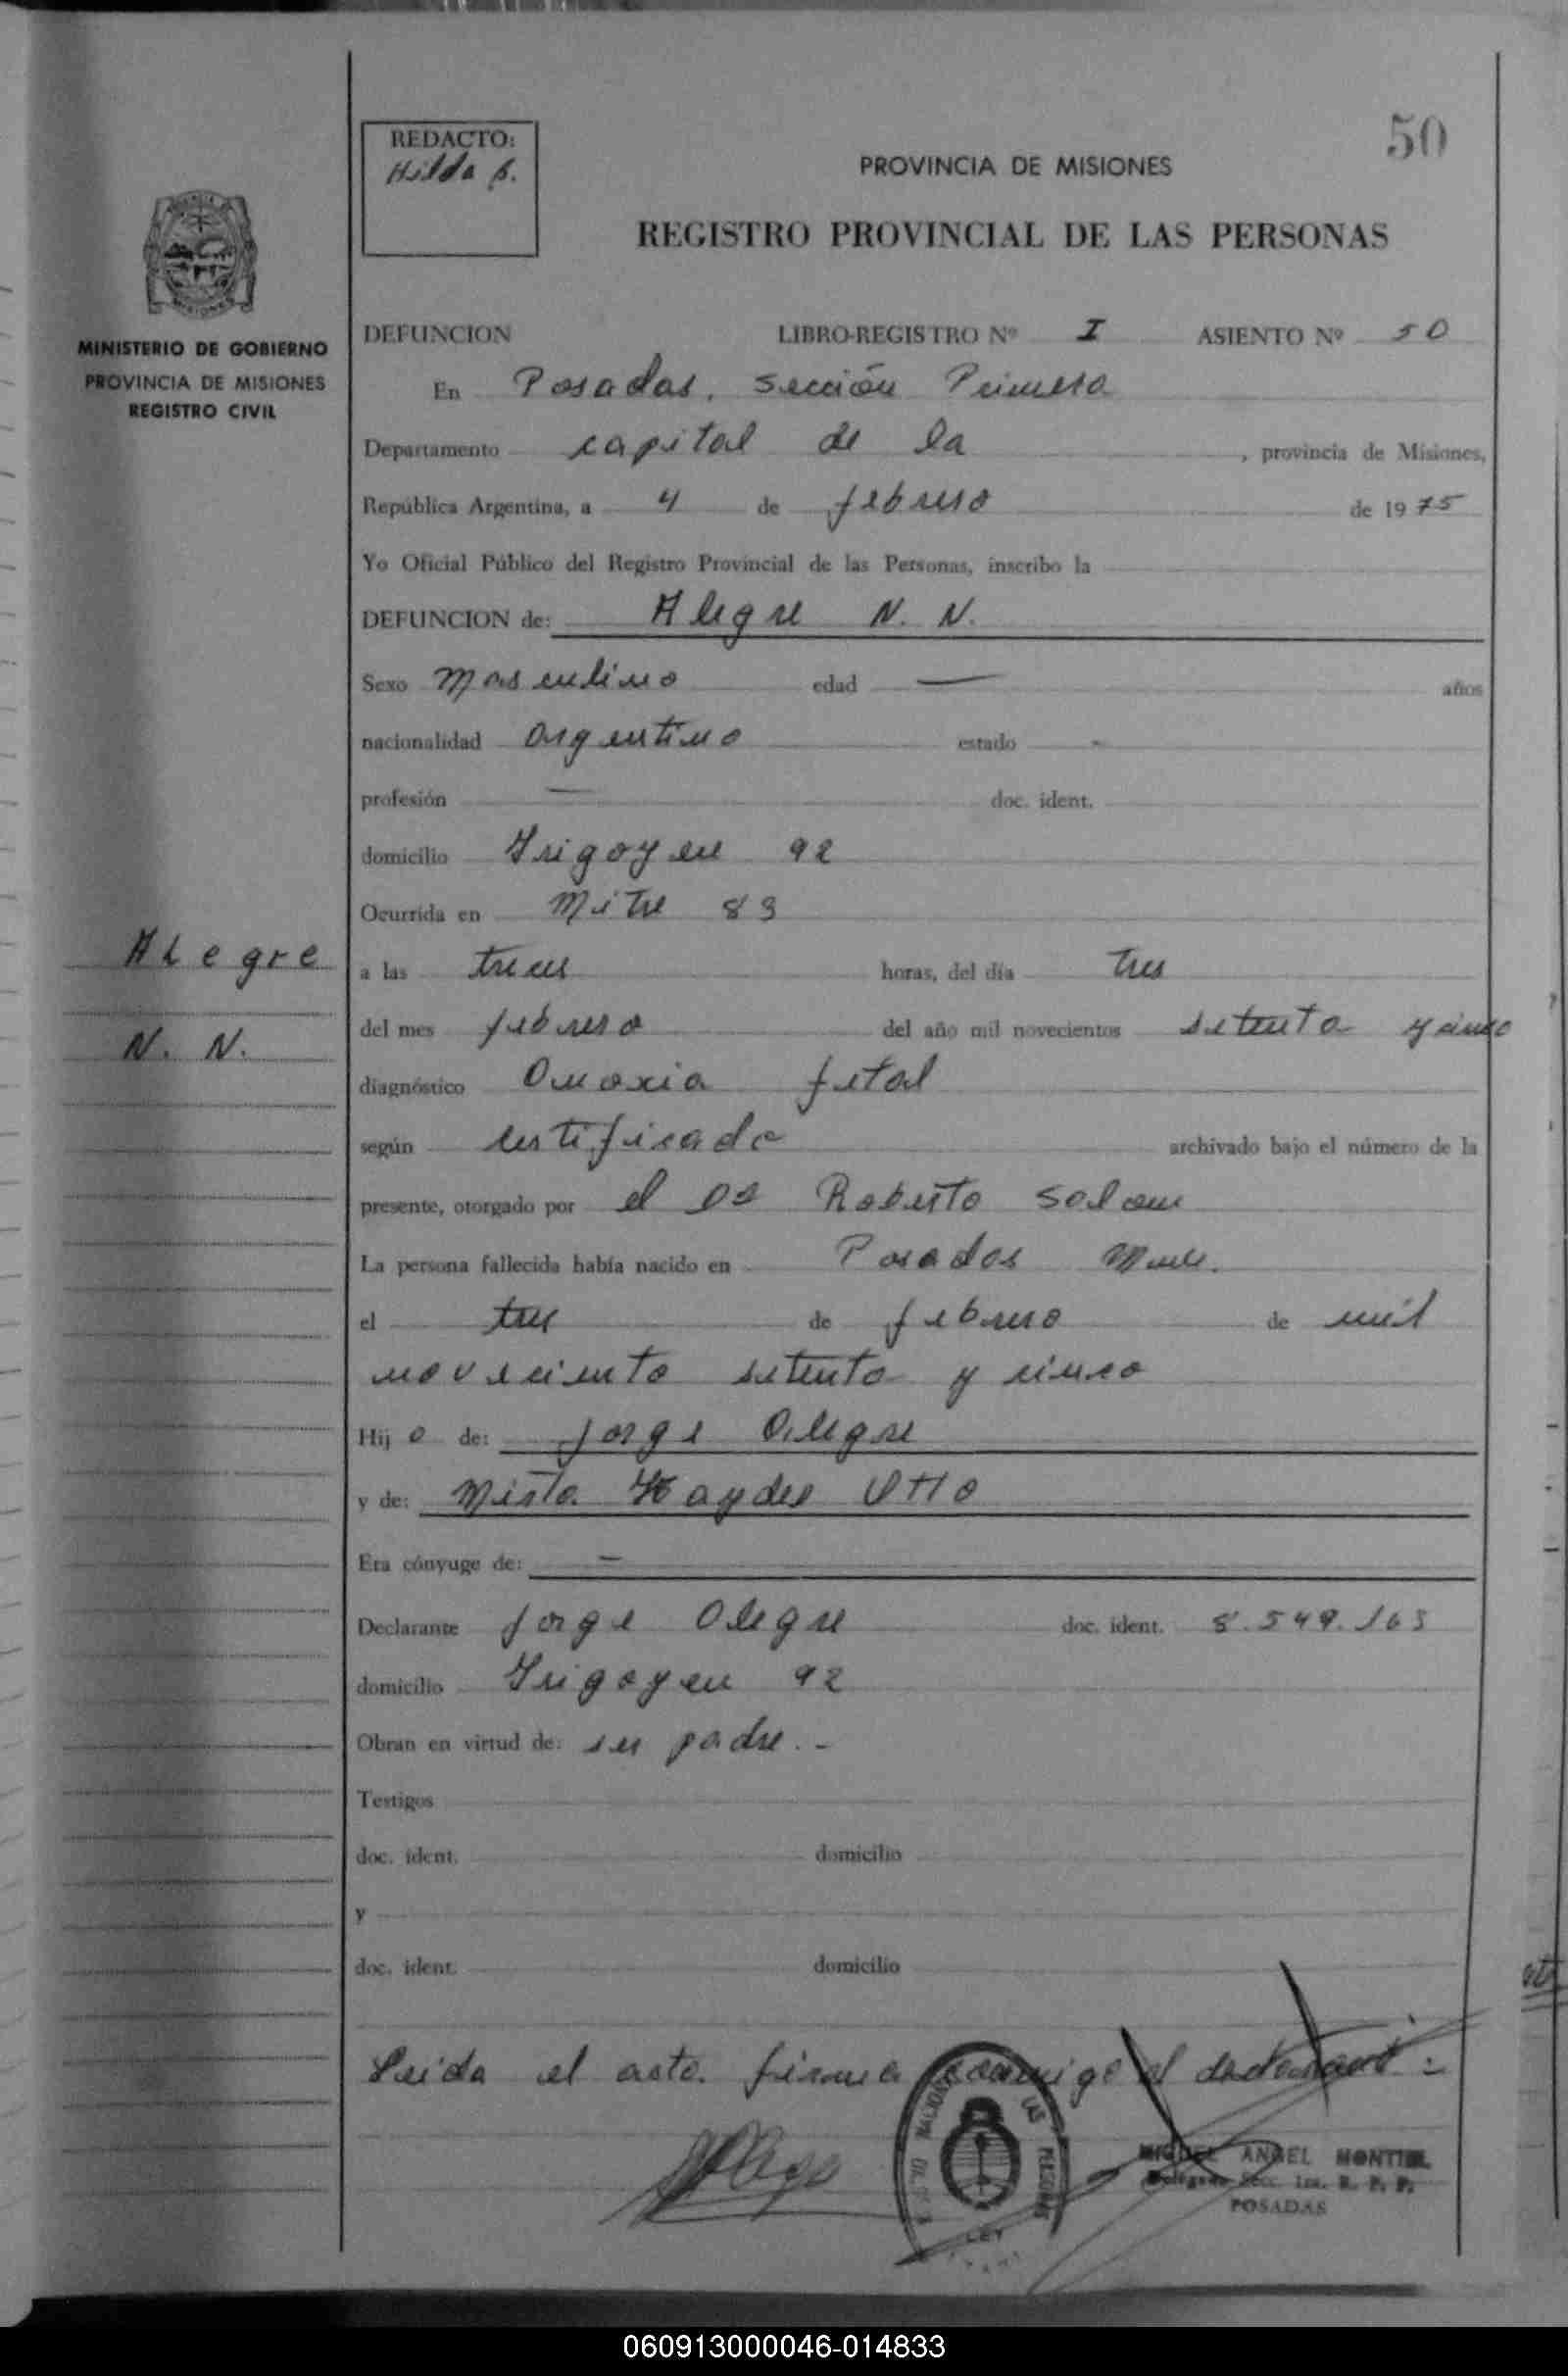 50
REDACTO:
Hilda B.
PROVINCIA DE MISIONES
REGISTRO PROVINCIAL DE LAS PERSONAS
MINISTERIO DE GOBIERNO
PROVINCIA DE MISIONES
REGISTRO CIVIL
DEFUNCION LIBRO-REGISTRO Nº I ASIENTO Nº 50
En Posadas, Sección Primera
Departamento capital de la , provincia de Misiones,
República Argentina, a 4 de febrero de 1975
Yo Oficial Público del Registro Provincial de las Personas, inscribo la
DEFUNCION de: Alegre N. N.
Sexo masculino edad — años
nacionalidad argentino estado -
profesión — doc. ident.
domicilio Irigoyen 92
Ocurrida en Mitre 83
Alegre
a las trece horas, del día tres
N. N.
del mes febrero del año mil novecientos setenta y cinco
diagnóstico Anoxia fetal
según certificado archivado bajo el número de la
presente, otorgado por el Dr Roberto
La persona fallecida había nacido en Posadas
el tres de febrero de mil
noveciento setenta y cinco
Hijo de: Jorge Alegre
y de: Mirta Haydee Otto
Era cónyuge de: —
Declarante Jorge Alegre doc. ident. 8.549.163
domicilio Irigoyen 92
Obran en virtud de: ser padre.-
Testigos
doc. ident. domicilio
y
doc. ident. domicilio
Leida el acta firma conmigo el declarante:
MIGUEL ANGEL MONTIEL
Delegado Secc. 1ra. R. P. P.
POSADAS
060913000046-014833